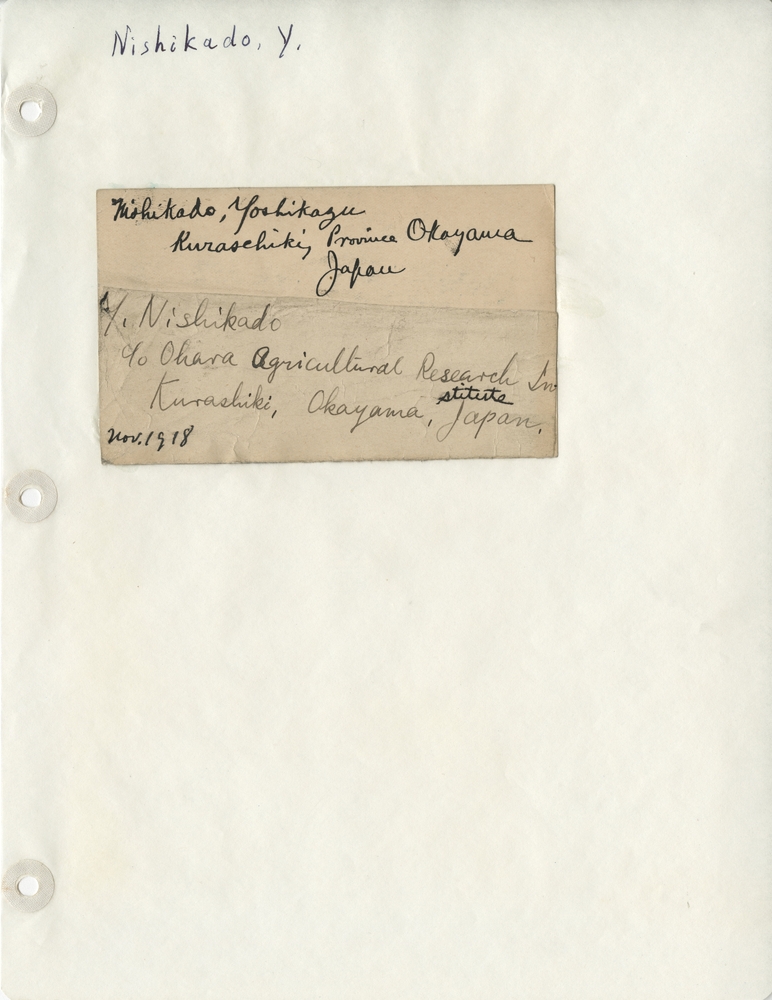 Nishikado, Y.
Nishikado, Yoshikazu
Kuraschiki, Province Okayama
Japan
Y. Nishikado
c/o Ohara Agricultural Research In-
stitute
Kurashiki, Okayama, Japan.
Nov. 1918